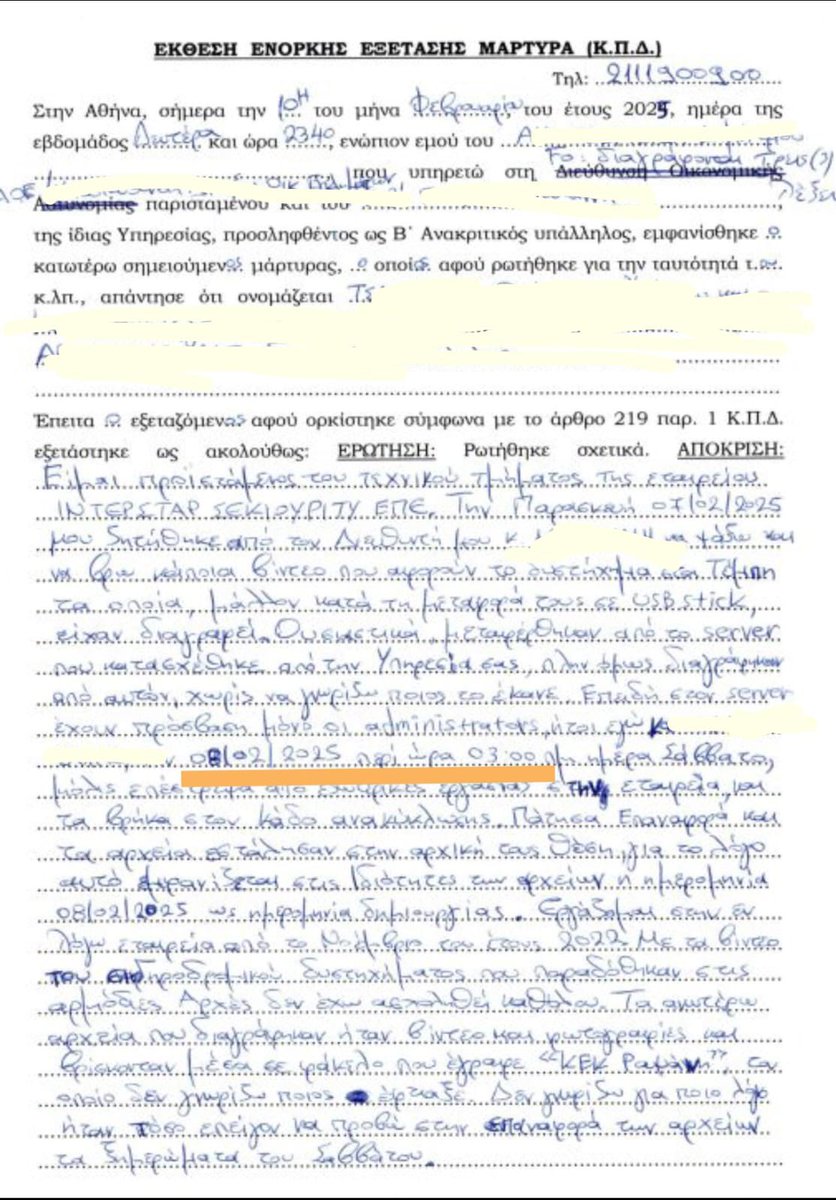 ΕΚΘΕΣΗ ΕΝΟΡΚΗΣ ΕΞΕΤΑΣΗΣ ΜΑΡΤΥΡΑ (Κ.Π.Δ.)
Τηλ: 2111900900
Στην Αθήνα, σήμερα την 10η του μήνα Φεβρουαρίου, του έτους 2025, ημέρα της
εβδομάδος Δευτέρα και ώρα 2340, ενώπιον εμού του Α
που υπηρετώ στη Διεύθυνση Οικονομικής
Αστυνομίας παρισταμένου και του
της ίδιας Υπηρεσίας, προσληφθέντος ως Β΄ Ανακριτικός υπάλληλος, εμφανίσθηκε ο
κατωτέρω σημειούμενος μάρτυρας, ο οποίος αφού ρωτήθηκε για την ταυτότητά του
κ.λπ., απάντησε ότι ονομάζεται ΤΣ
Έπειτα ο εξεταζόμενος αφού ορκίστηκε σύμφωνα με το άρθρο 219 παρ. 1 Κ.Π.Δ.
εξετάστηκε ως ακολούθως: ΕΡΩΤΗΣΗ: Ρωτήθηκε σχετικά. ΑΠΟΚΡΙΣΗ:
Είμαι προϊστάμενος του τεχνικού τμήματος της εταιρείου
INTERSTAR ΣΕΚΙΟΥΡΙΤΥ ΕΠΕ. Την Παρασκευή 07/02/2025
μου ζητήθηκε από τον Διευθυντή μου κ. να ψάξω και
να βρω κάποια βίντεο που αφορούν το δυστήχημα στα Τέμπη
τα οποία, μάλλον κατά τη μεταφορά τους σε USB stick,
είχαν διαγραφεί. Ουσιαστικά, μεταφέρθηκαν από το server
που κατασχέθηκε από την Υπηρεσία σας, πλην όμως διαγράφηκαν
από αυτόν, χωρίς να γνωρίζω ποιος το έκανε. Επειδή στον server
έχουν πρόσβαση μόνο οι administrators, ήτοι εγώ κα
08/02/2025 περί ώρα 03:00 ημέρα Σάββατο,
μόλις επέστρεψα από εξωτερικές εργασίες στην εταιρεία, και
τα βρήκα στον κάδο ανακύκλωσης. Πάτησα Επαναφορά και
τα αρχεία εστάλησαν στην αρχική τους θέση, για το λόγο
αυτό εμφανίζεται στις Ιδιότητες των αρχείων η ημερομηνία
08/02/2025 ως ημερομηνία δημιουργίας. Εργάζομαι στην εν
λόγω εταιρεία από το Νοέμβριο του έτους 2022. Με τα βίντεο
του σιδηροδρομικού δυστηχήματος που παραδόθηκαν στις
αρμόδιες Αρχές δεν έχω ασχοληθεί καθόλου. Τα ανωτέρω
αρχεία που διαγράφηκαν ήταν βίντεο και φωτογραφίες και
βρίσκονταν μέσα σε φάκελο που έγραφε "ΚΕΚ Ραψάνη", τον
οποίο δεν γνωρίζω ποιος έφτιαξε. Δεν γνωρίζω για ποιο λόγο
ήταν τόσο επείγον να προβώ στην επαναφορά των αρχείων
τα ξημερώματα του Σαββάτου.